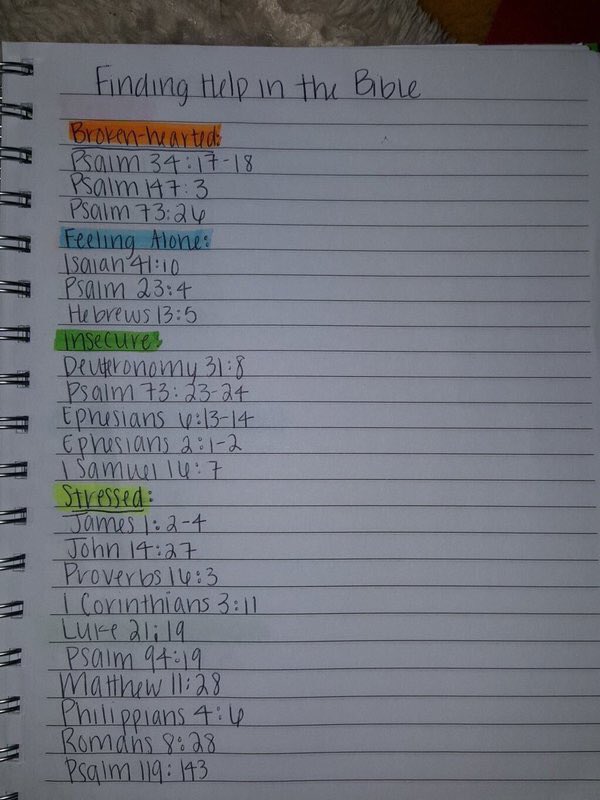 Finding Help in the Bible
Broken-hearted:
Psalm 34:17-18
Psalm 147:3
Psalm 73:26
Feeling Alone:
Isaiah 41:10
Psalm 23:4
Hebrews 13:5
Insecure:
Deuteronomy 31:8
Psalm 73:23-24
Ephesians 6:13-14
Ephesians 2:1-2
1 Samuel 16:7
Stressed:
James 1:2-4
John 14:27
Proverbs 16:3
1 Corinthians 3:11
Luke 21:19
Psalm 94:19
Matthew 11:28
Philippians 4:6
Romans 8:28
Psalm 119:143